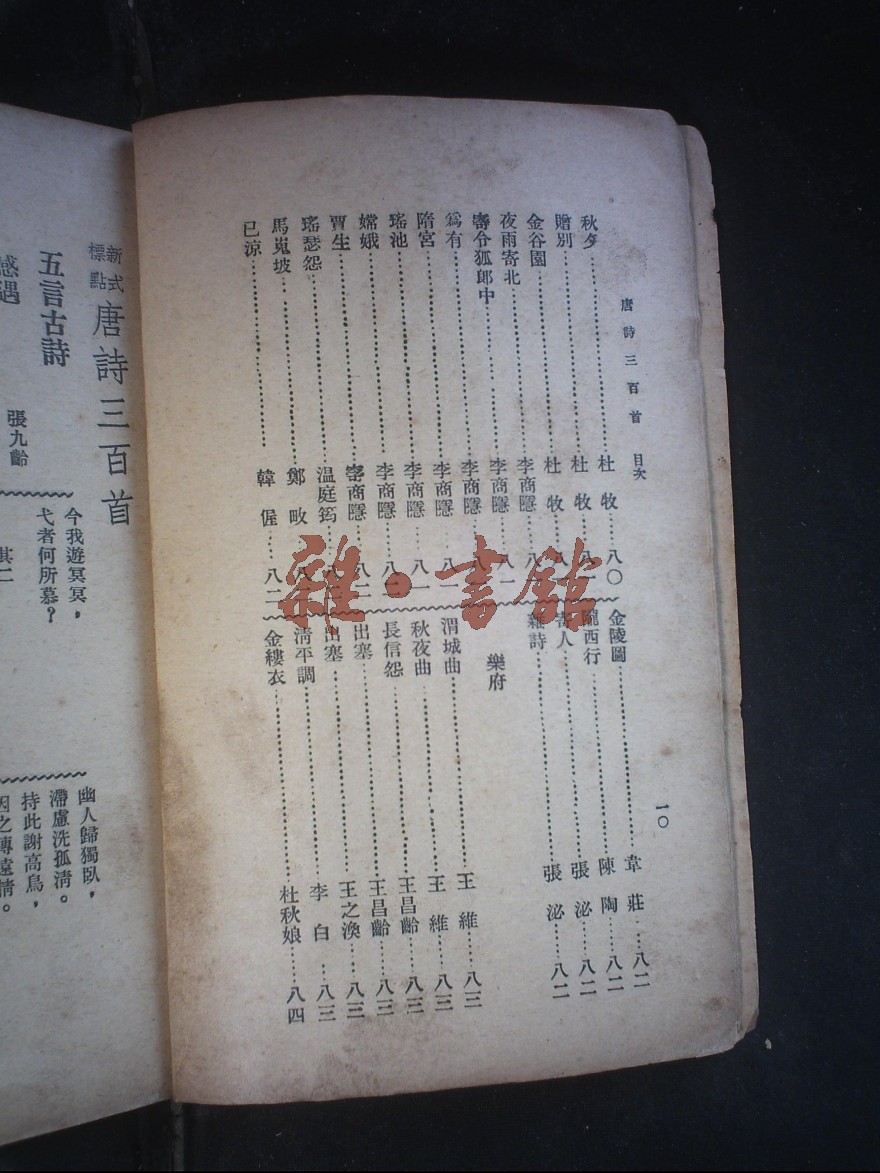 唐詩三百首 目次
一〇
秋夕……杜牧…八〇
贈別……杜牧…八一
金谷園……杜牧…八一
夜雨寄北……李商隱…八一
寄令狐郎中……李商隱…八一
爲有……李商隱…八一
隋宮……李商隱…八一
瑤池……李商隱…八一
嫦娥……李商隱…八一
賈生……李商隱…八二
瑤瑟怨……温庭筠…八二
馬嵬坡……鄭畋…八二
已涼……韓偓…八二
金陵圖……韋莊…八二
隴西行……陳陶…八二
寄人……張泌…八二
雜詩……張泌…八二
樂府
渭城曲……王維…八三
秋夜曲……王維…八三
長信怨……王昌齡…八三
出塞……王昌齡…八三
出塞……王之渙…八三
清平調……李白…八三
金縷衣……杜秋娘…八四
新式標點 唐詩三百首
五言古詩
感遇
張九齡
今我遊冥冥，
弋者何所慕？
其二
幽人歸獨臥，
滯慮洗孤清。
持此謝高鳥，
因之傳遠情。
雜·書館